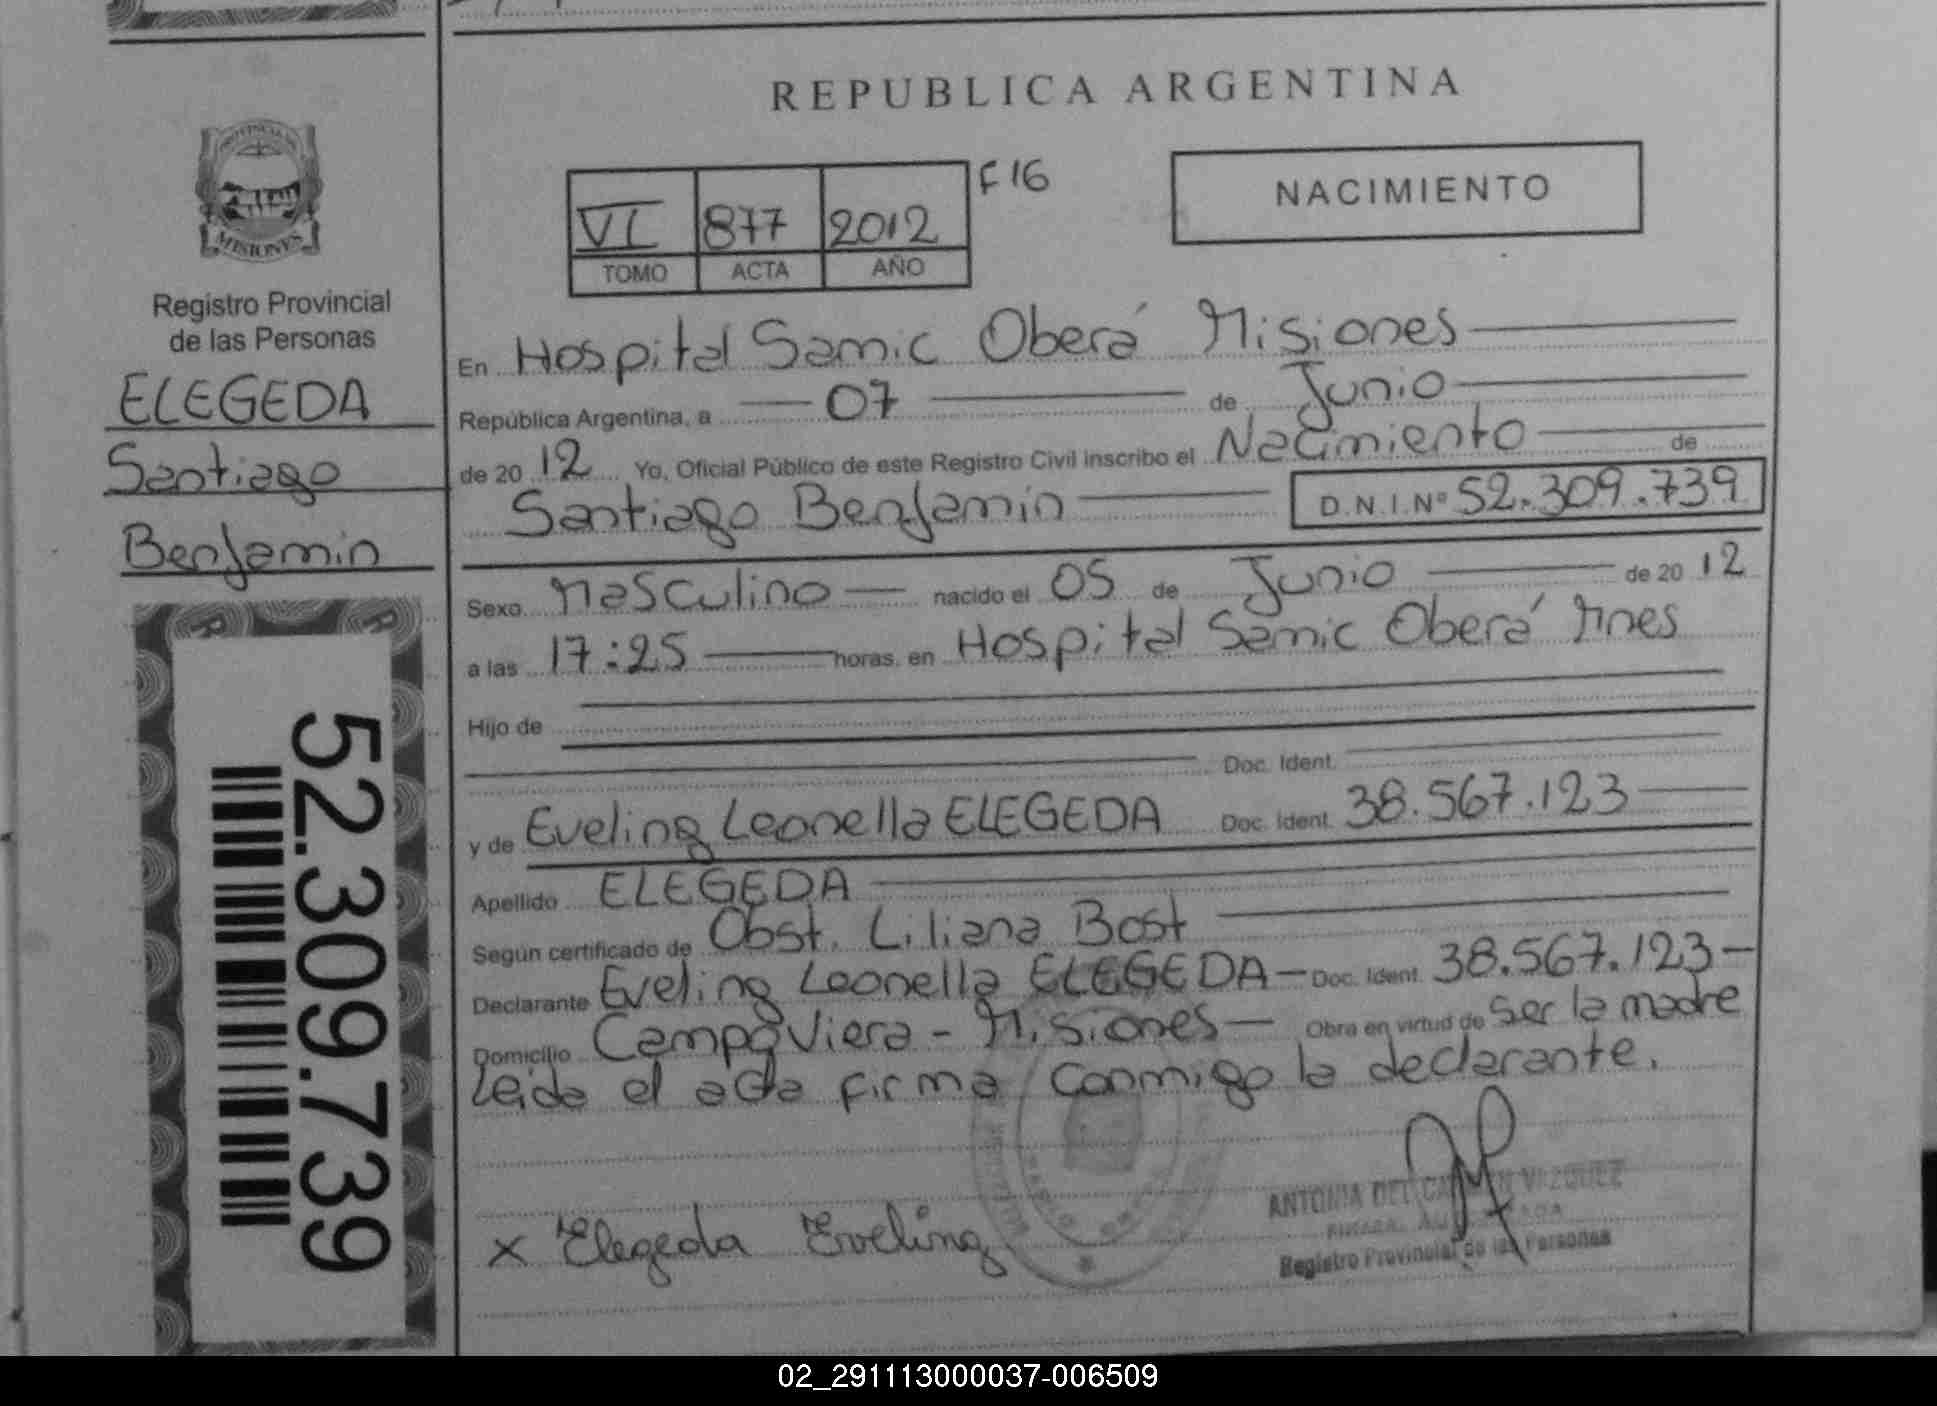 REPUBLICA ARGENTINA
NACIMIENTO
VI 877 2012 F 16
TOMO ACTA AÑO
MISIONES
Registro Provincial
de las Personas
ELEGEDA
Santiago
Benjamin
52.309.739
En Hospital Samic Oberá Misiones
República Argentina, a 07 de Junio
de 20 12 Yo, Oficial Público de este Registro Civil inscribo el Nacimiento de
Santiago Benjamin D.N.I.Nº 52.309.739
Sexo Masculino nacido el 05 de Junio de 20 12
a las 17:25 horas, en Hospital Samic Oberá Mnes
Hijo de
Doc. Ident.
y de Eveling Leonella ELEGEDA Doc. Ident. 38.567.123
Apellido ELEGEDA
Según certificado de Obst. Liliana Bost
Declarante Eveling Leonella ELEGEDA Doc. Ident. 38.567.123
Domicilio Campo Viera - Misiones Obra en virtud de ser la madre
Leida el acta firma conmigo la declarante.
x Elegeda Eveling
ANTONIA DEL CARMEN VAZQUEZ
Registro Provincial de las Personas
02_291113000037-006509